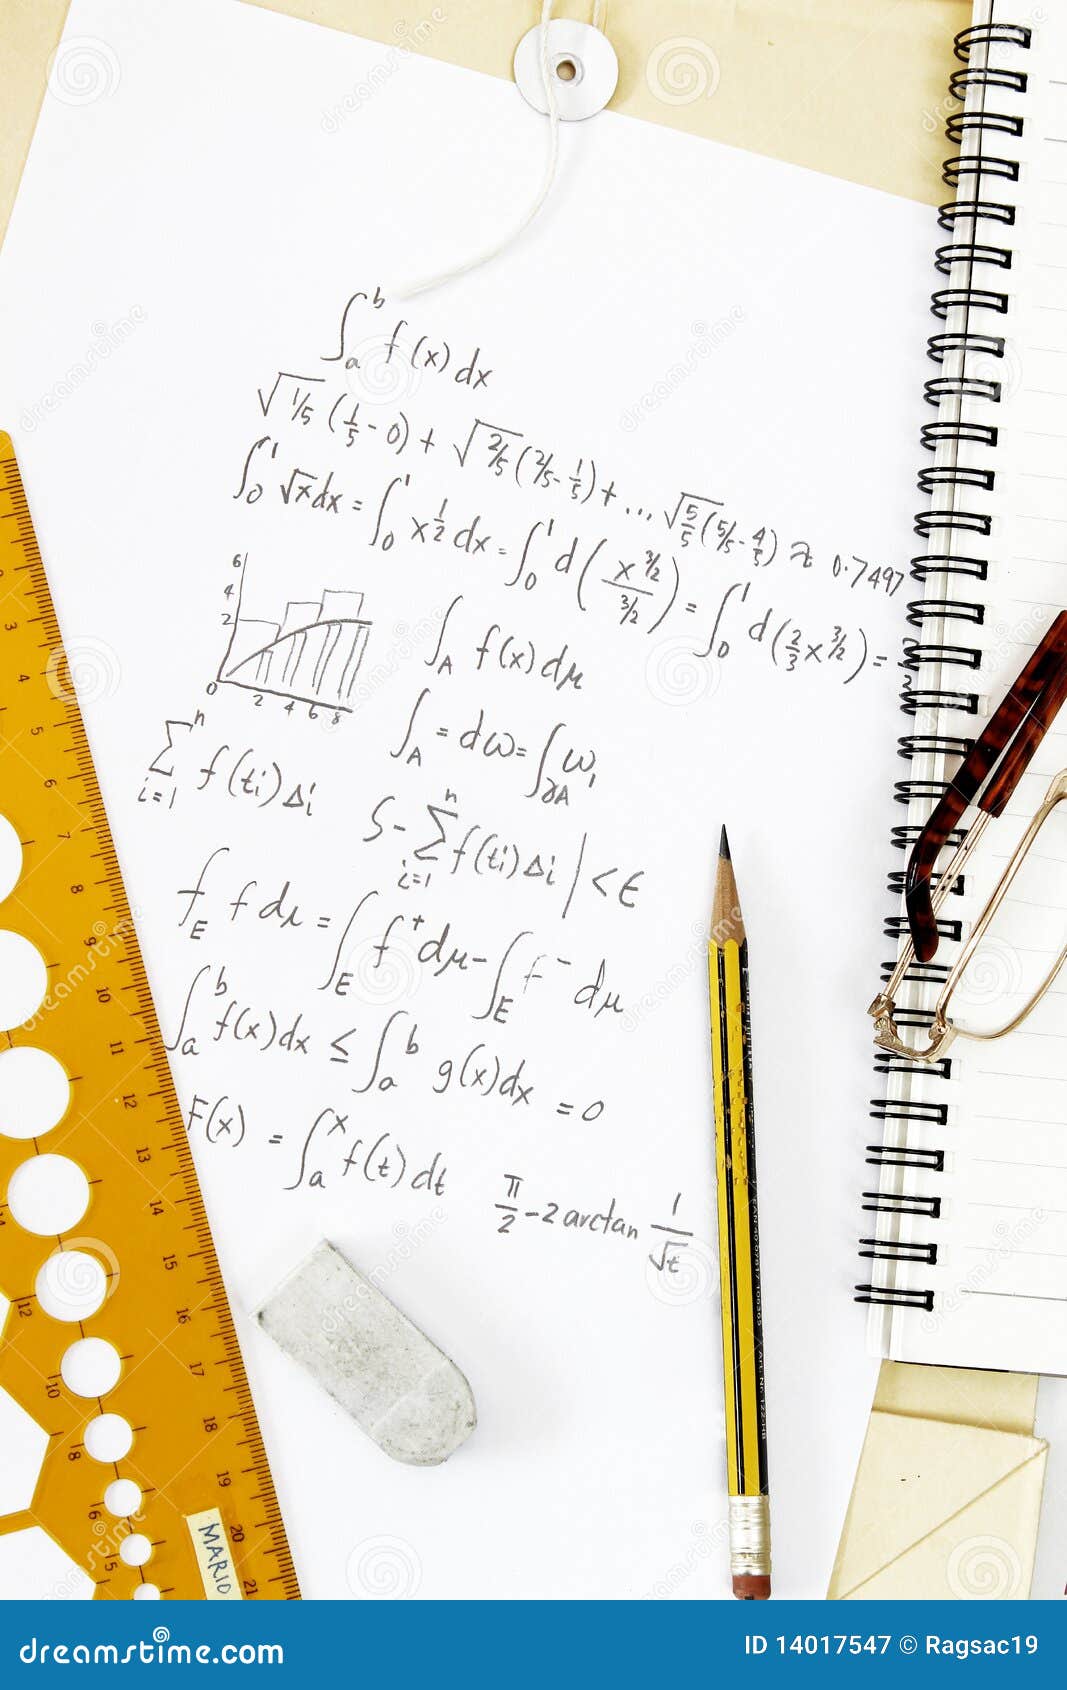 ∫ₐᵇ f(x) dx
√1/5 (1/5 - 0) + √2/5 (2/5 - 1/5) + ... √5/5 (5/5 - 4/5) ≈ 0.7497
∫₀¹ √x dx = ∫₀¹ x^1/2 dx = ∫₀¹ d(x^3/2 / 3/2) = ∫₀¹ d(2/3 x^3/2) =
6
4
2
0 2 4 6 8
∫_A f(x) dμ
∫_A = dω = ∫_∂A ω,
Σ_{i=1}^n f(ti) Δi
S - Σ_{i=1}^n f(ti) Δi | < ε
∫_E f dμ = ∫_E f⁺ dμ - ∫_E f⁻ dμ
∫ₐᵇ f(x) dx ≤ ∫ₐᵇ g(x) dx = 0
F(x) = ∫ₐˣ f(t) dt
π/2 - 2 arctan 1/√t
3
4
5
6
7
8
9
10
11
12
13
14
15
16
17
18
19
20
21
14
12
10
8
6
5
MARIO
dreamstime.com
ID 14017547 © Ragsac19